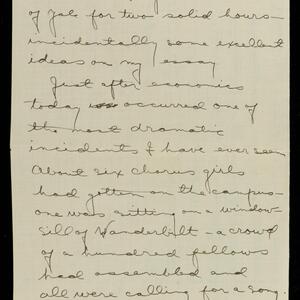 of Yale for two solid hours -
incidentally some excellent
ideas on my essay
Just after economics
today occurred one of
the most dramatic
incidents I have ever seen
About six chorus girls
had gotten on the campus -
one was sitting on a window-
sill of Vanderbilt - a crowd
of a hundred fellows
had assembled and
all were calling for a song.